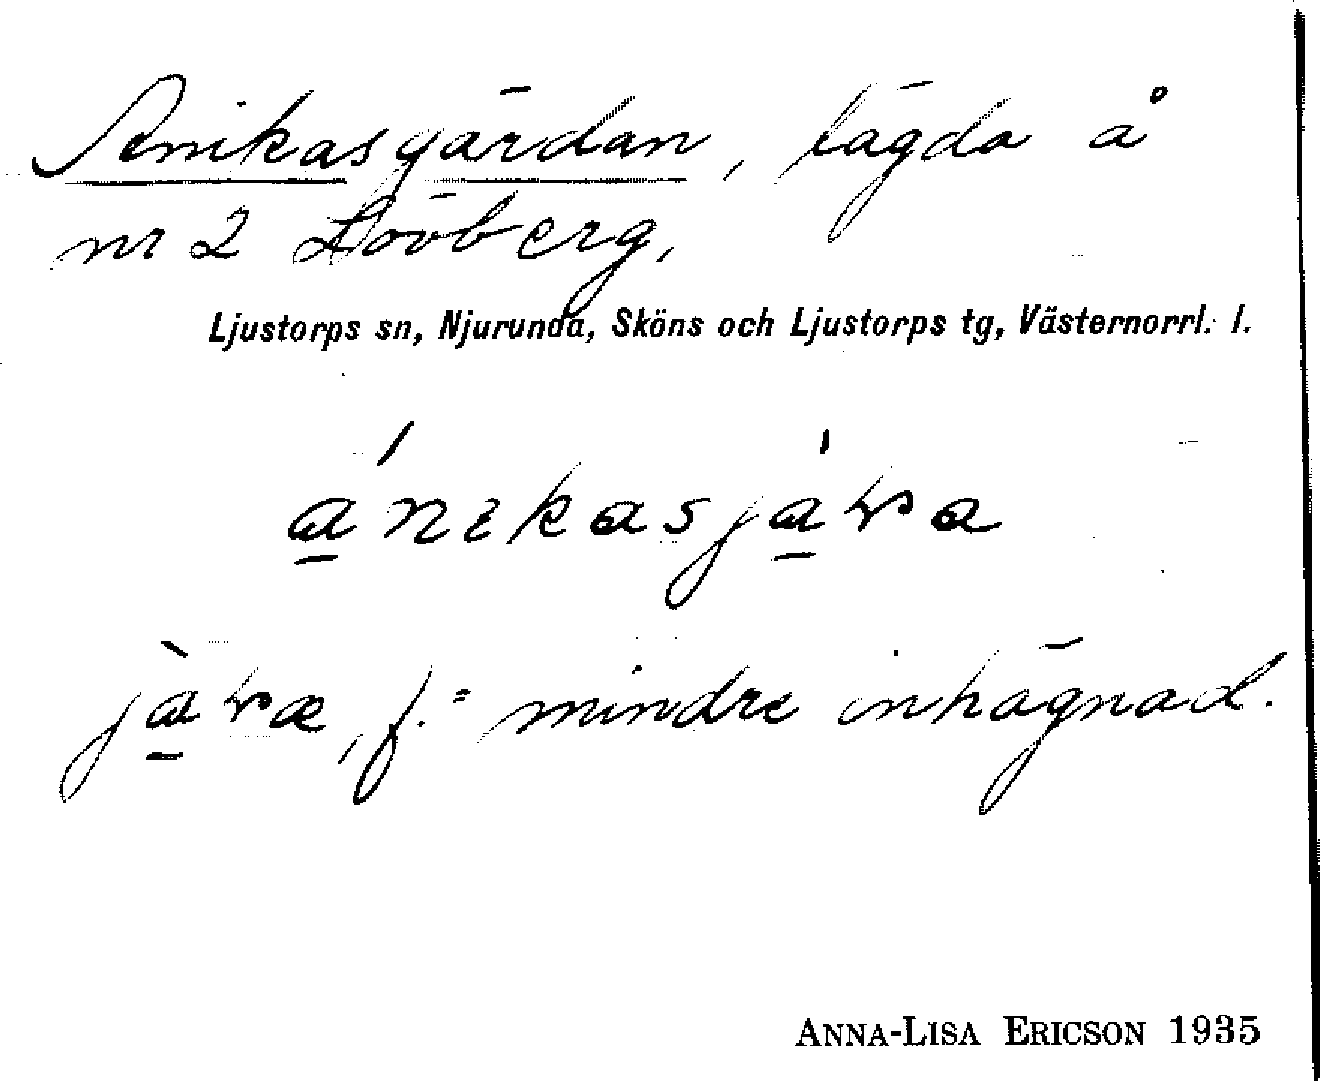 Anikasgärdan, lägda å
nr 2 Lövberg,
Ljustorps sn, Njurunda, Sköns och Ljustorps tg, Västernorrl. l.
f. = mindre inhägnad.
ANNA-LISA ERICSON 1935